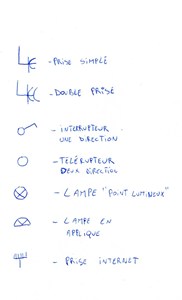 - PRISE SIMPLE
- DOUBLE PRISE
- INTERRUPTEUR
UNE DIRECTION
- TÉLÉRUPTEUR
DEUX DIRECTION
- LAMPE "POINT LUMINEUX"
- LAMPE EN
APPLIQUE
- PRISE INTERNET